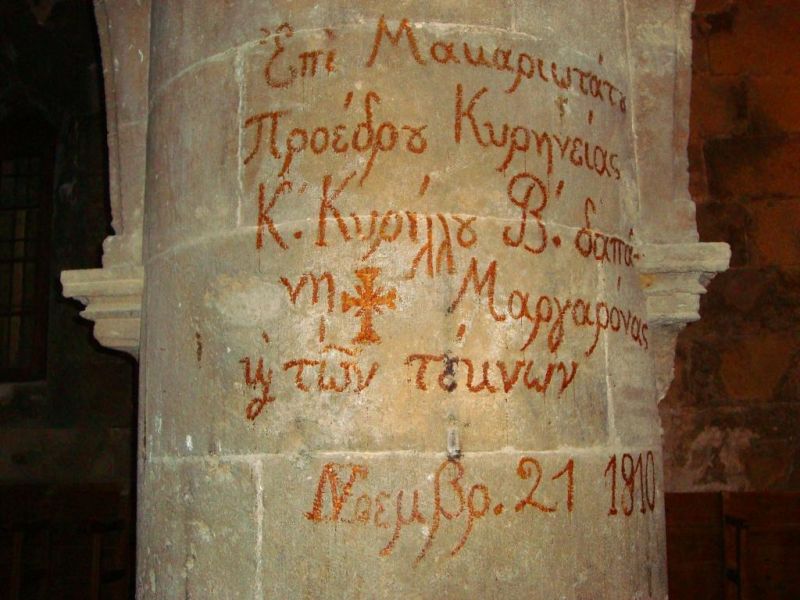 Ἐπὶ Μακαριωτάτȣ
Προέδρȣ Κυρηνείας
Κ. Κυρίλλȣ Β. δαπά-
νῃ ✠ Μαργαρόνας
ϗ τῶν τέκνων
Νοεμβρ. 21 1910